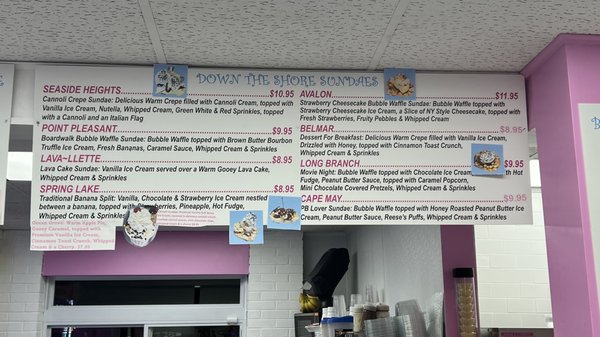 DOWN THE SHORE SUNDAES
SEASIDE HEIGHTS $10.95
Cannoli Crepe Sundae: Delicious Warm Crepe filled with Cannoli Cream, topped with
Vanilla Ice Cream, Nutella, Whipped Cream, Green White & Red Sprinkles, topped
with a Cannoli and an Italian Flag
POINT PLEASANT $9.95
Boardwalk Bubble Waffle Sundae: Bubble Waffle topped with Brown Butter Bourbon
Truffle Ice Cream, Fresh Bananas, Caramel Sauce, Whipped Cream & Sprinkles
LAVA~LLETTE $9.95
Lava Cake Sundae: Vanilla Ice Cream served over a Warm Gooey Lava Cake,
Whipped Cream & Sprinkles
SPRING LAKE $8.95
Traditional Banana Split: Vanilla, Chocolate & Strawberry Ice Cream nestled
between a banana, topped with Strawberries, Pineapple, Hot Fudge,
Whipped Cream & Sprinkles
Ocean Grove: Warm Apple Pie,
topped with
Premium Vanilla Ice Cream,
Cinnamon Toast Crunch, Whipped
Cream & a Cherry. $7.95
AVALON $11.95
Strawberry Cheesecake Bubble Waffle Sundae: Bubble Waffle topped with
Strawberry Cheesecake Ice Cream, a Slice of NY Style Cheesecake, topped with
Fresh Strawberries, Fruity Pebbles & Whipped Cream
BELMAR $8.95
Dessert For Breakfast: Delicious Warm Crepe filled with Vanilla Ice Cream,
Drizzled with Honey, topped with Cinnamon Toast Crunch,
Whipped Cream & Sprinkles
LONG BRANCH $9.95
Movie Night: Bubble Waffle topped with Chocolate Ice Cream with Hot
Fudge, Peanut Butter Sauce, topped with Caramel Popcorn,
Mini Chocolate Covered Pretzels, Whipped Cream & Sprinkles
CAPE MAY $9.95
PB Lover Sundae: Bubble Waffle topped with Honey Roasted Peanut Butter Ice
Cream, Peanut Butter Sauce, Reese's Puffs, Whipped Cream & Sprinkles